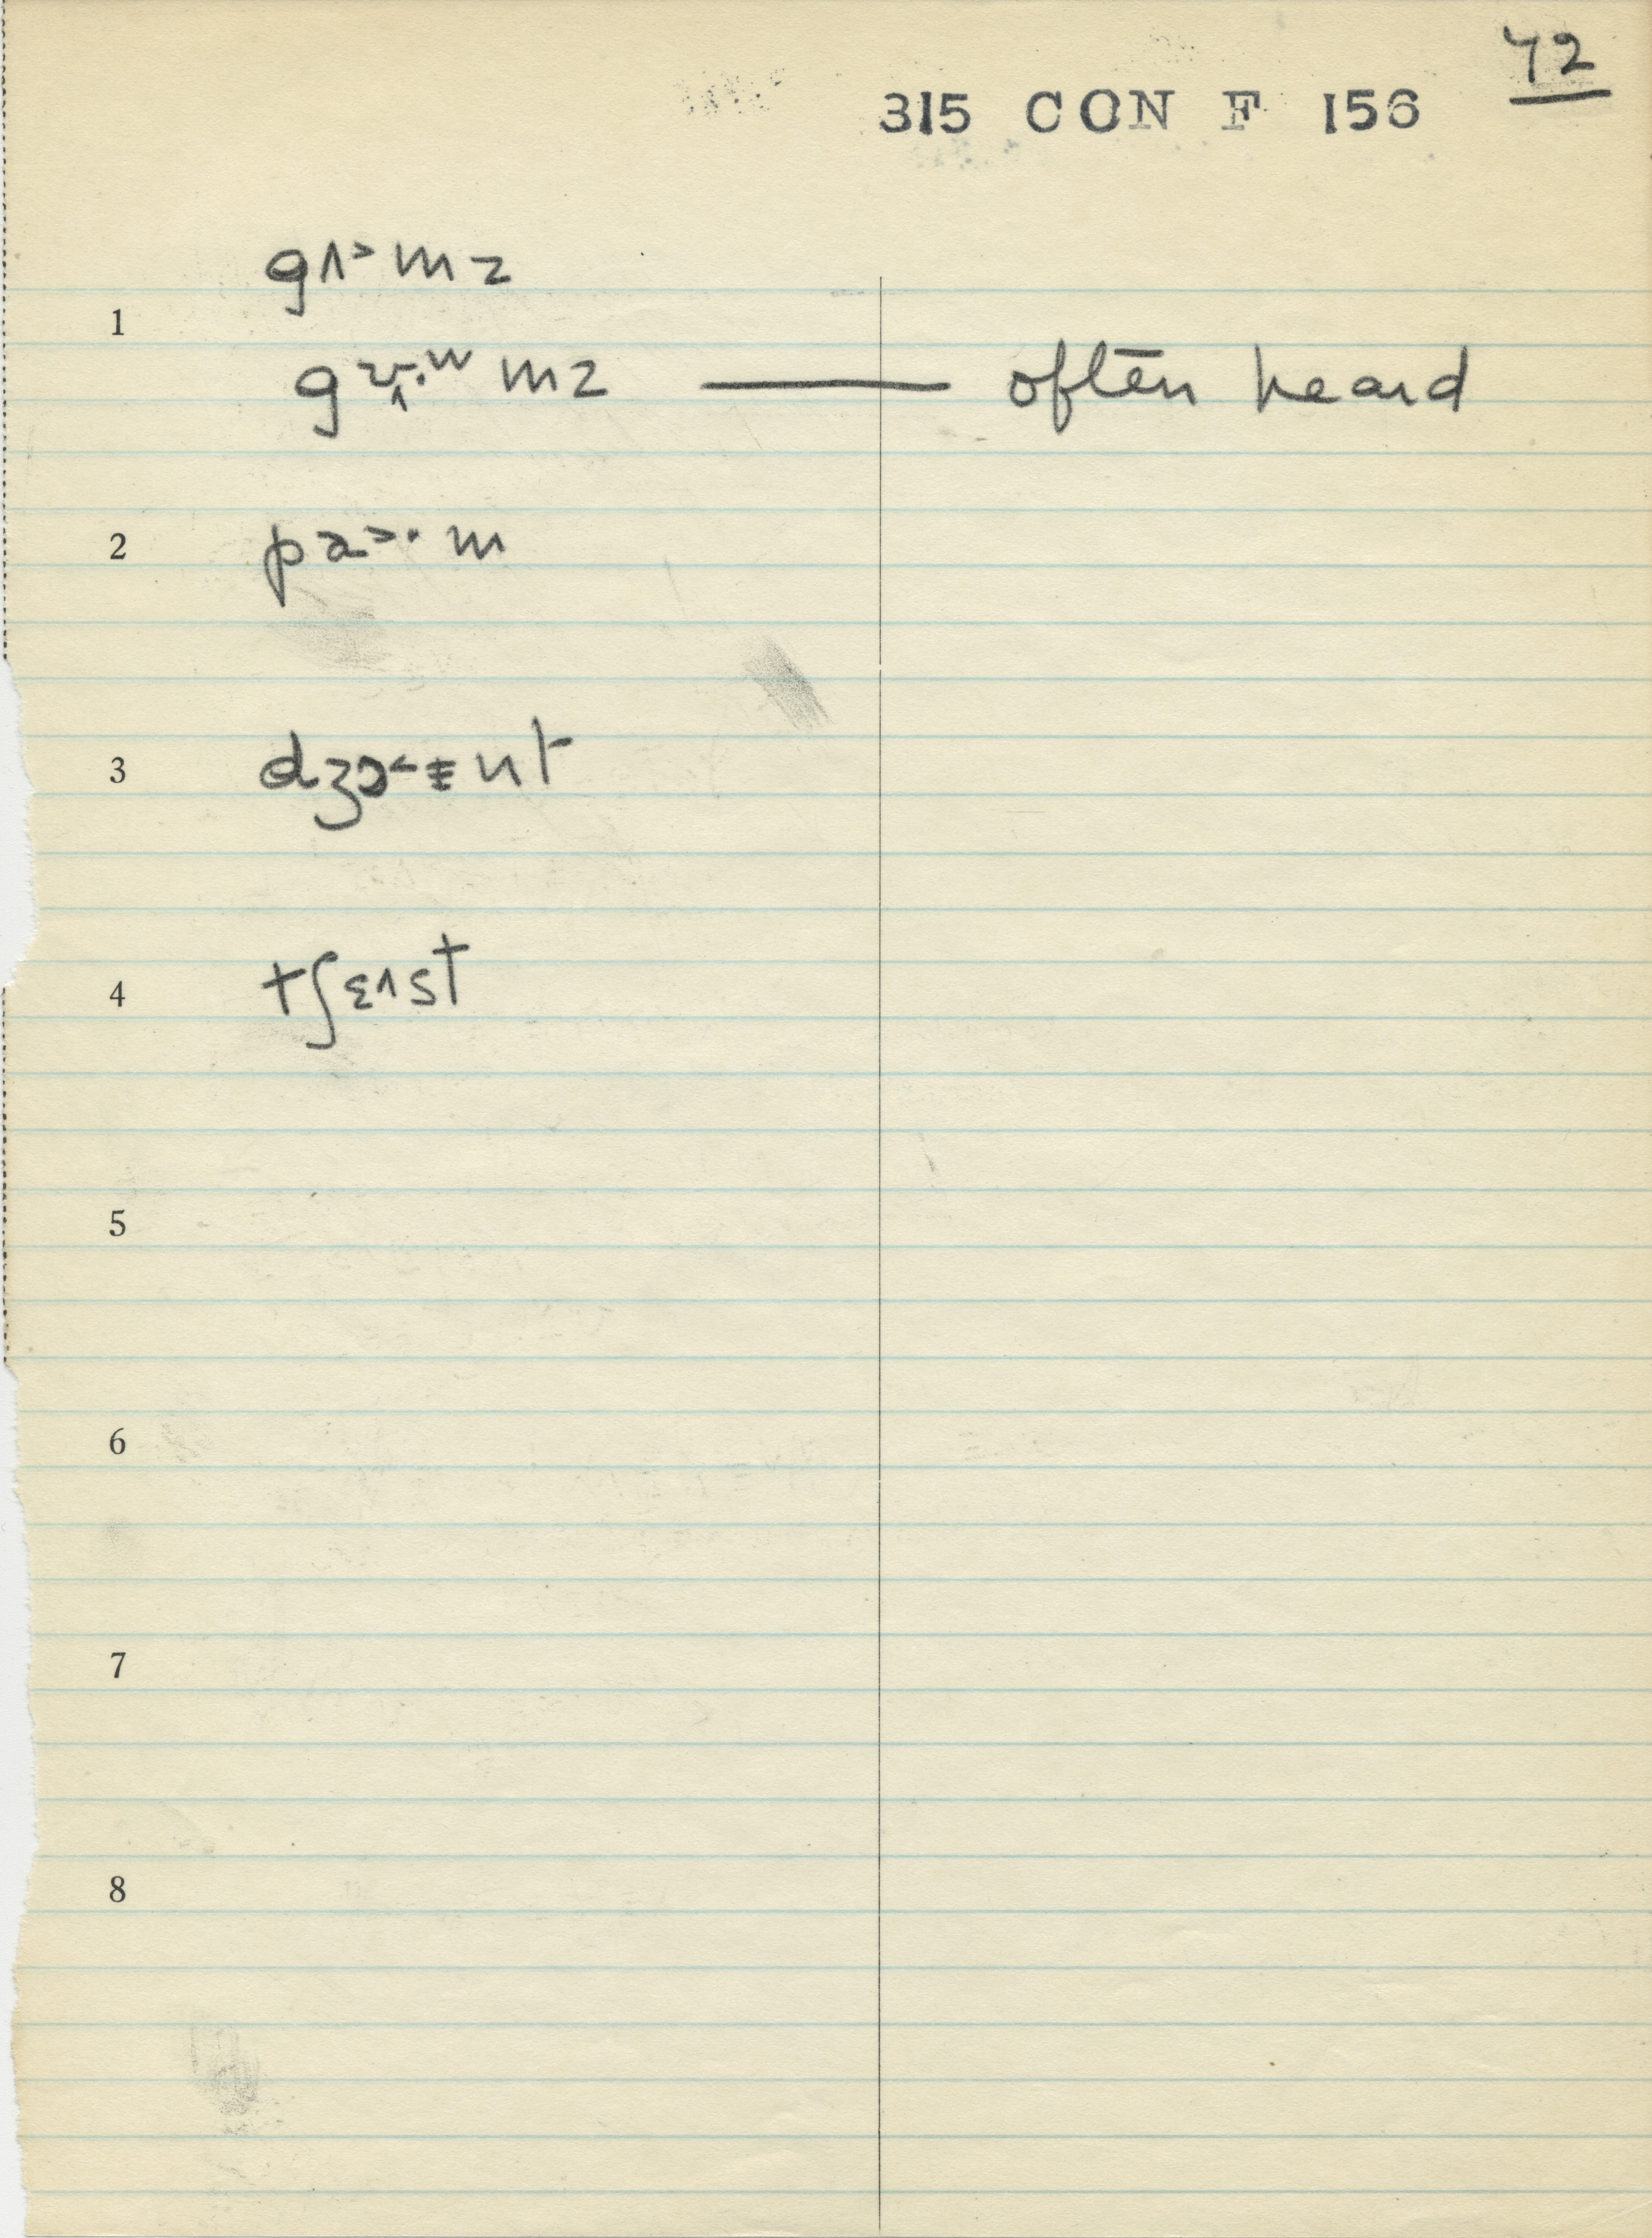 42
315 CON F 156
gʌ˃mz
1
gɤ̞·ɯmz — often heard
2 pa˃·m
3 dʒɔ˂ɪnt
4 tʃɛ˄st
5
6
7
8